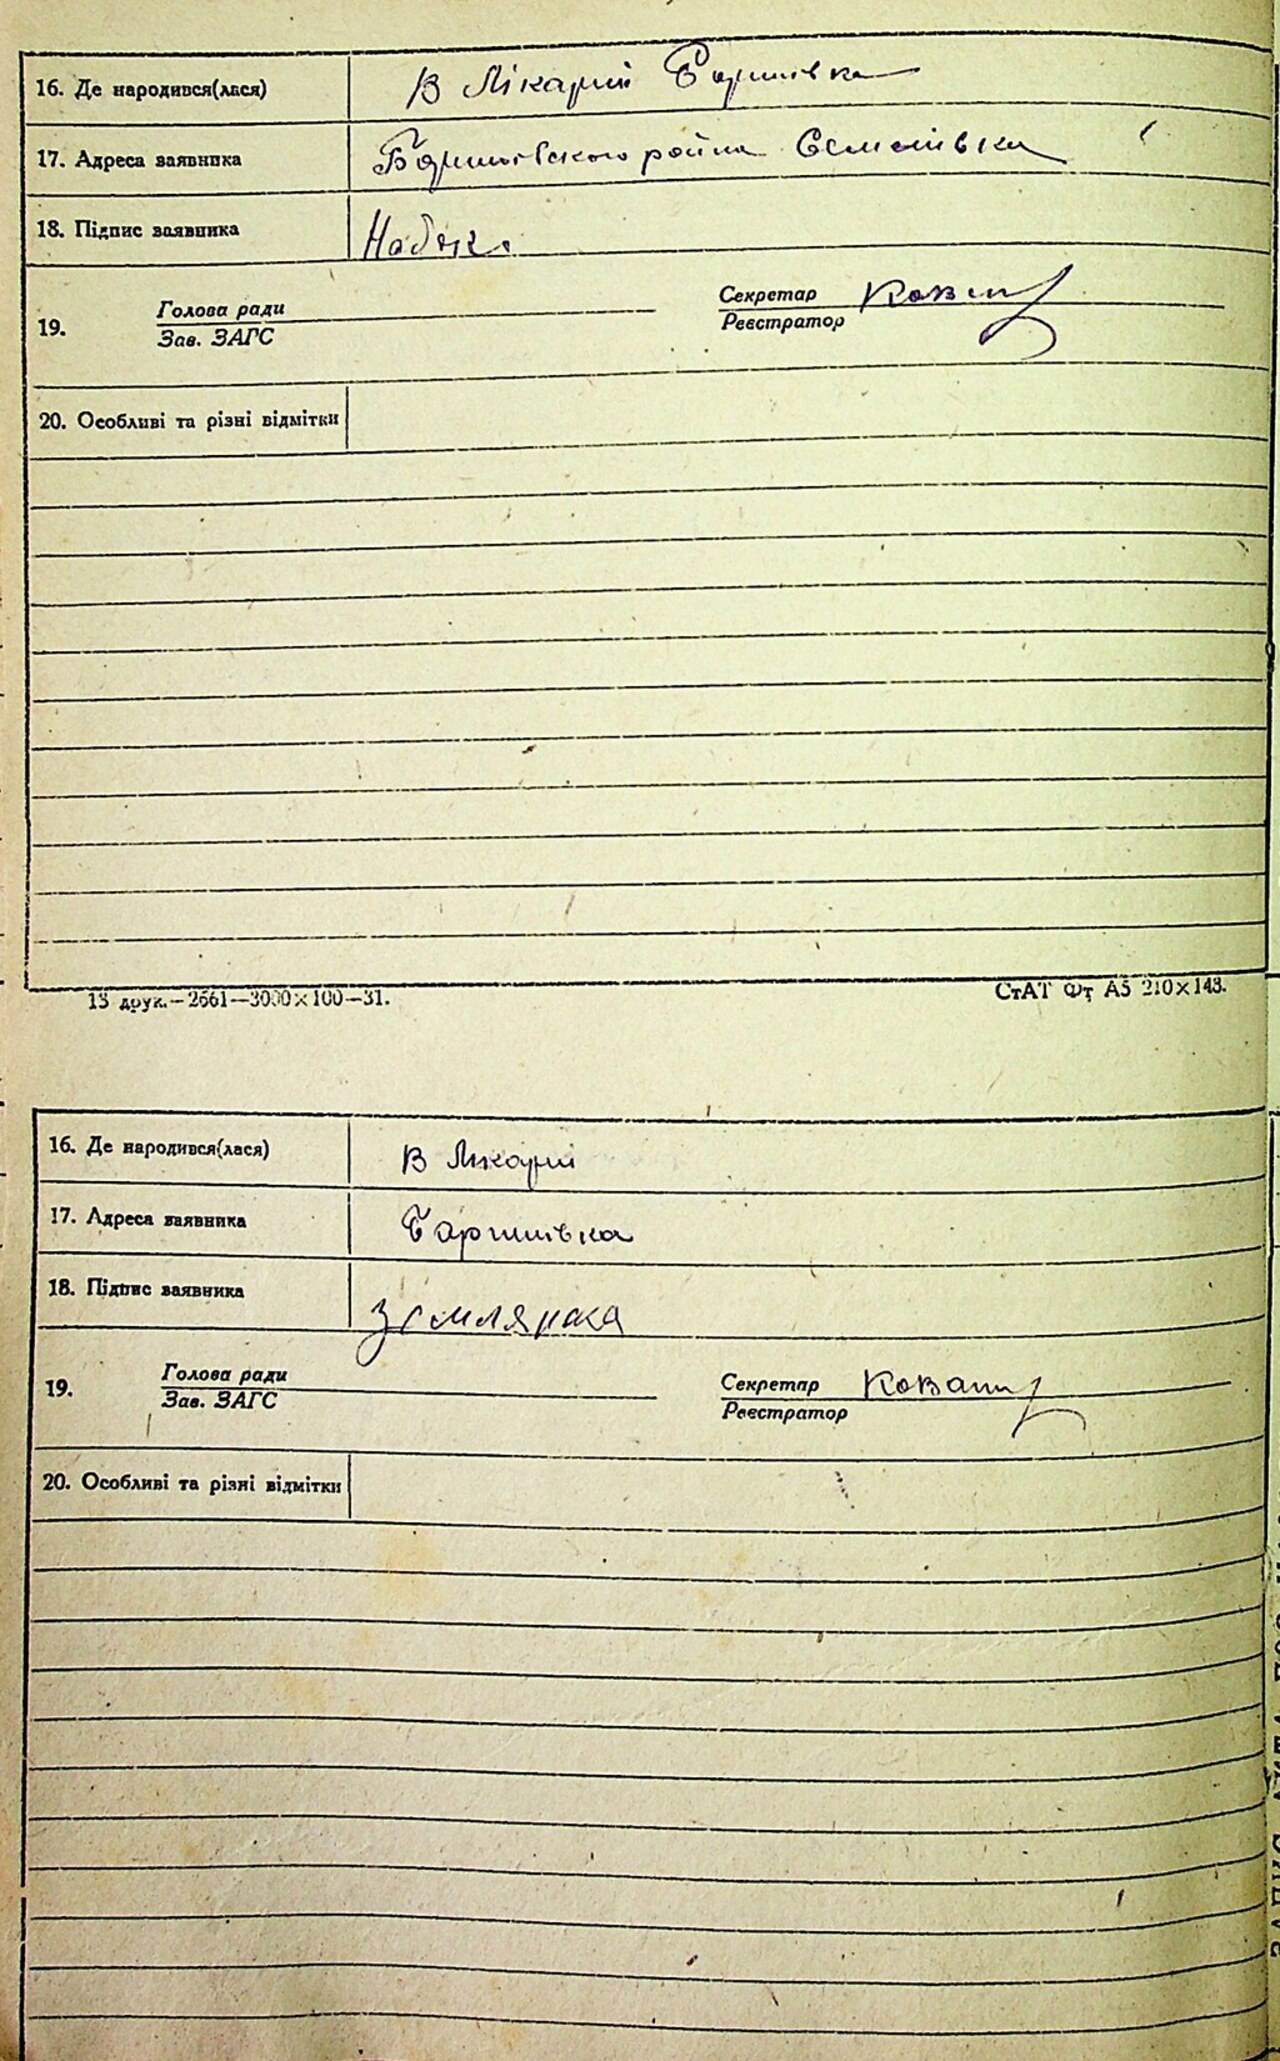 16. Де народився(лася) В Лікарні Баришівка
17. Адреса заявника Баришівського району Семенівка
18. Підпис заявника
19. Голова ради Секретар
Зав. ЗАГС Реєстратор
20. Особливі та різні відмітки
13 друк.—2661—3000×100—31. СтАТ Фт А5 210×143.
16. Де народився(лася) В Лікарні
17. Адреса заявника Баришівка
18. Підпис заявника Землянка
19. Голова ради Секретар
Зав. ЗАГС Реєстратор
20. Особливі та різні відмітки